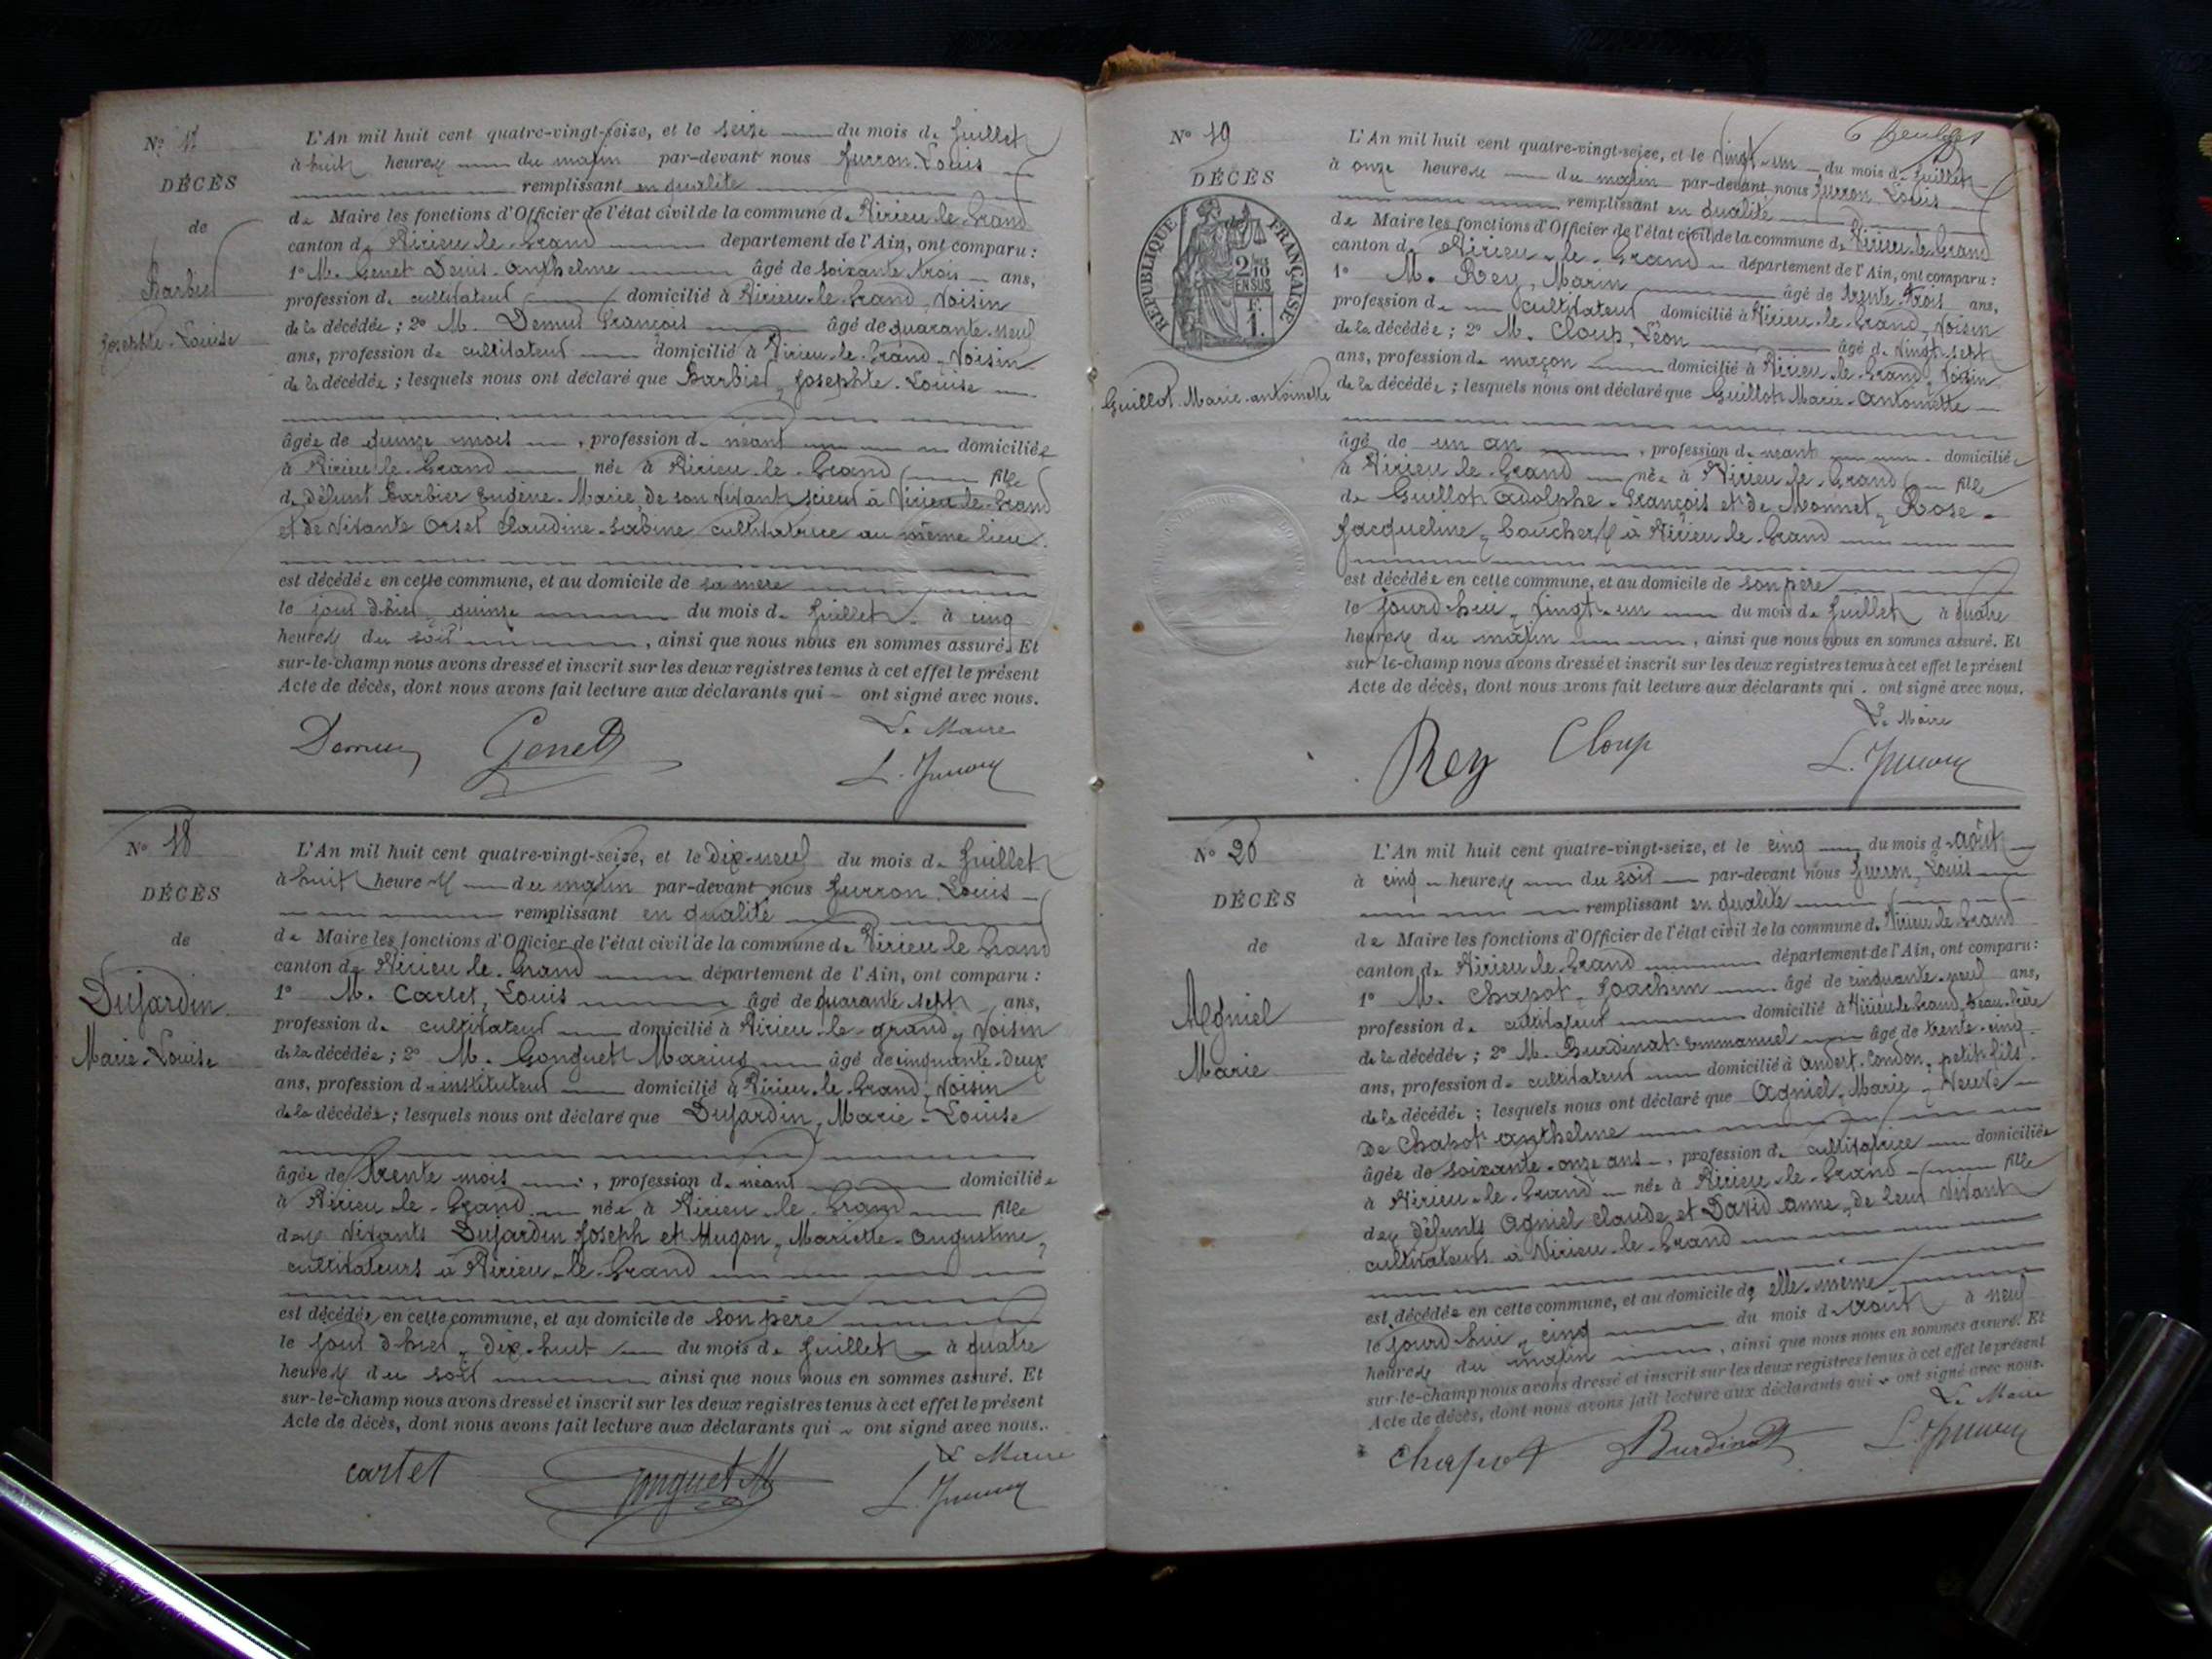 Nº 17
DÉCÈS
de
Barbier
Josephte-Louise
L'An mil huit cent quatre-vingt-seize, et le seize du mois de Juillet
à huit heures du matin par-devant nous Jurron Louis
remplissant en qualité
de Maire les fonctions d'Officier de l'état civil de la commune de Virieu-le-Grand
canton de Virieu-le-Grand département de l'Ain, ont comparu :
1º M. Genet Denis-Anthelme âgé de soixante-trois ans,
profession de cultivateur domicilié à Virieu-le-Grand, Voisin
de la décédée ; 2º M. Demur François âgé de quarante-neuf
ans, profession de cultivateur domicilié à Virieu-le-Grand, Voisin
de la décédée ; lesquels nous ont déclaré que Barbier, Josephte-Louise
âgée de quinze mois, profession de néant domiciliée
à Virieu-le-Grand née à Virieu-le-Grand fille
de défunt Barbier Eugène-Marie, de son vivant scieur à Virieu-le-Grand
et de vivante Orset Claudine-Sabine cultivatrice au même lieu.
est décédée en cette commune, et au domicile de sa mère
le jour d'hier, quinze du mois de Juillet à cinq
heures du soir, ainsi que nous nous en sommes assuré. Et
sur-le-champ nous avons dressé et inscrit sur les deux registres tenus à cet effet le présent
Acte de décès, dont nous avons fait lecture aux déclarants qui ont signé avec nous.
Le Maire
Demur Genet L. Jurron
Nº 18
DÉCÈS
de
Dujardin
Marie-Louise
L'An mil huit cent quatre-vingt-seize, et le dix-neuf du mois de Juillet
à huit heures du matin par-devant nous Jurron Louis
remplissant en qualité
de Maire les fonctions d'Officier de l'état civil de la commune de Virieu le Grand
canton de Virieu le Grand département de l'Ain, ont comparu :
1º M. Cartet, Louis âgé de quarante-sept ans,
profession de cultivateur domicilié à Virieu-le-grand, Voisin
de la décédée ; 2º M. Gonguet Marius âgé de cinquante-deux
ans, profession d'instituteur domicilié à Virieu-le-Grand, Voisin
de la décédée ; lesquels nous ont déclaré que Dujardin, Marie-Louise
âgée de trente mois, profession de néant domiciliée
à Virieu-le-Grand née à Virieu-le-Grand fille
des vivants Dujardin Joseph et Hugon, Mariette-Augustine,
cultivateurs à Virieu-le-Grand
est décédée en cette commune, et au domicile de son père
le jour d'hier, dix-huit du mois de Juillet à quatre
heures du soir ainsi que nous nous en sommes assuré. Et
sur-le-champ nous avons dressé et inscrit sur les deux registres tenus à cet effet le présent
Acte de décès, dont nous avons fait lecture aux déclarants qui ont signé avec nous.
Le Maire
cartet Gonguet M L. Jurron
Nº 19
DÉCÈS
RÉPUBLIQUE FRANÇAISE
2/10
EN SUS
F.
1.
Guillot Marie-antoinette
L'An mil huit cent quatre-vingt-seize, et le vingt-un du mois de Juillet
à onze heures du matin par-devant nous Jurron Louis
remplissant en qualité
de Maire les fonctions d'Officier de l'état civil de la commune de Virieu-le-Grand
canton de Virieu-le-Grand département de l'Ain, ont comparu :
1º M. Rey, Marin âgé de trente-trois ans,
profession de cultivateur domicilié à Virieu-le-Grand, Voisin
de la décédée ; 2º M. Cloup, Léon âgé de vingt-sept
ans, profession de maçon domicilié à Virieu-le-Grand, Voisin
de la décédée ; lesquels nous ont déclaré que Guillot Marie-Antoinette
âgé de un an, profession de néant domiciliée
à Virieu-le-Grand née à Virieu-le-Grand fille
de Guillot Adolphe-François et de Monnet, Rose-
Jacqueline, bouchers à Virieu-le-Grand
est décédée en cette commune, et au domicile de son père
le jourd'hui, vingt-un du mois de Juillet à quatre
heures du matin, ainsi que nous nous en sommes assuré. Et
sur-le-champ nous avons dressé et inscrit sur les deux registres tenus à cet effet le présent
Acte de décès, dont nous avons fait lecture aux déclarants qui ont signé avec nous.
Le Maire
Rey Cloup L. Jurron
Nº 20
DÉCÈS
de
Agniel
Marie
L'An mil huit cent quatre-vingt-seize, et le cinq du mois d'août
à cinq heures du soir par-devant nous Jurron, Louis
remplissant en qualité
de Maire les fonctions d'Officier de l'état civil de la commune de Virieu-le-Grand
canton de Virieu-le-Grand département de l'Ain, ont comparu :
1º M. Chapot, Joachim âgé de cinquante-neuf ans,
profession de cultivateur domicilié à Virieu-le-Grand, beau-frère
de la décédée ; 2º M. Burdinat Emmanuel âgé de trente-cinq
ans, profession de cultivateur domicilié à Andert-Condon, petit-fils
de la décédée ; lesquels nous ont déclaré que Agniel, Marie, Veuve
de Chapot Anthelme
âgée de soixante-onze ans, profession de cultivatrice domiciliée
à Virieu-le-Grand née à Virieu-le-Grand fille
des défunts Agniel Claude et David Anne, de leur vivant
cultivateurs à Virieu-le-Grand
est décédée en cette commune, et au domicile de elle-même
le jourd'hui, cinq du mois d'août à neuf
heures du matin, ainsi que nous nous en sommes assuré. Et
sur-le-champ nous avons dressé et inscrit sur les deux registres tenus à cet effet le présent
Acte de décès, dont nous avons fait lecture aux déclarants qui ont signé avec nous.
Le Maire
Chapot Burdinat L. Jurron